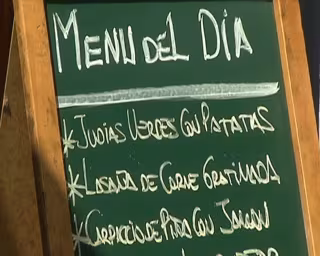 MENU DEL DÍA
*JUDÍAS VERDES CON PATATAS
*LASAÑA DE CARNE GRATINADA
*CARPACCIO DE PIÑA CON JAMON